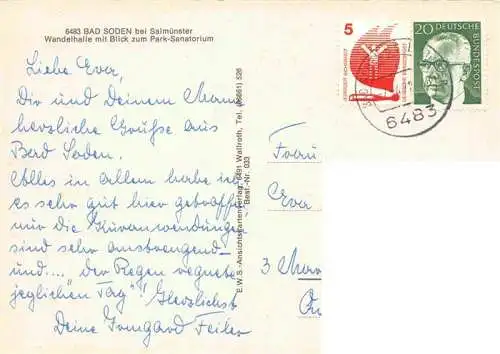 6483 BAD SODEN bei Salmünster
Wandelhalle mit Blick zum Park-Sanatorium
Liebe Eva,
Dir und Deinem Mann
herzliche Grüße aus
Bad Soden.
Alles in allem habe ich
es sehr gut hier getroffen
nur die Kuranwendungen
sind sehr anstrengend
und.... "der Regen regnete
jeglichen Tag"! Herzlichst
Deine Irmgard Feiler
E.W.S.-Ansichtskartenverlag, 6491 Wallroth, Tel. (06661) 526
Best.-Nr. 033
5
JEDERZEIT SICHERHEIT
DEUTSCHE BUNDESPOST
20 DEUTSCHE
BUNDESPOST
6483
Frau
Eva
3